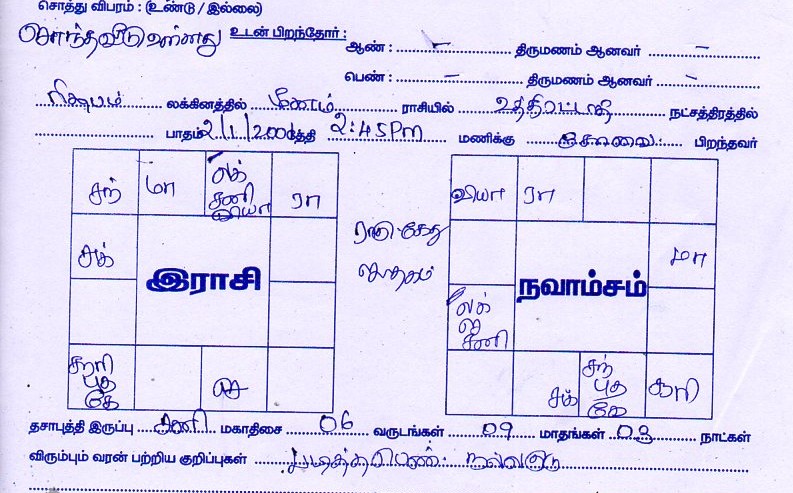 சொத்து விபரம் : (உண்டு / இல்லை)
சொந்தவீடு உள்ளது உடன் பிறந்தோர் : ஆண் : – திருமணம் ஆனவர் –
பெண் : – திருமணம் ஆனவர் –
ரிஷபம் லக்கினத்தில் மீனம் ராசியில் உத்திரட்டாதி நட்சத்திரத்தில்
பாதம் 2/1/2001 தேதி 2:45PM மணிக்கு பிறந்தவர்
சந் மா லக் சனி வியா ரா
சுக்
இராசி
சூரி புத கே செ
ராகு-கேது
ஜாதகம்
வியா ரா
மா
நவாம்சம்
லக் செ சனி
சுக் சந் புத கே சூரி
தசாபுத்தி இருப்பு சனி மகாதிசை 06 வருடங்கள் 09 மாதங்கள் 03 நாட்கள்
விரும்பும் வரன் பற்றிய குறிப்புகள் படித்த பெண்.